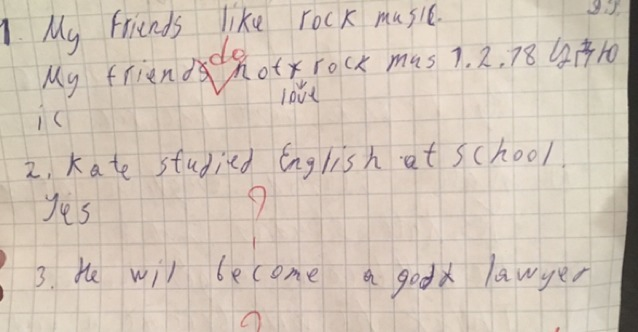 1. My friends like rock music.
My friends do not rock mus 1.2.78
love
ic
2. Kate studied English at school.
Yes
?
3. He wil become a good lawyer
?